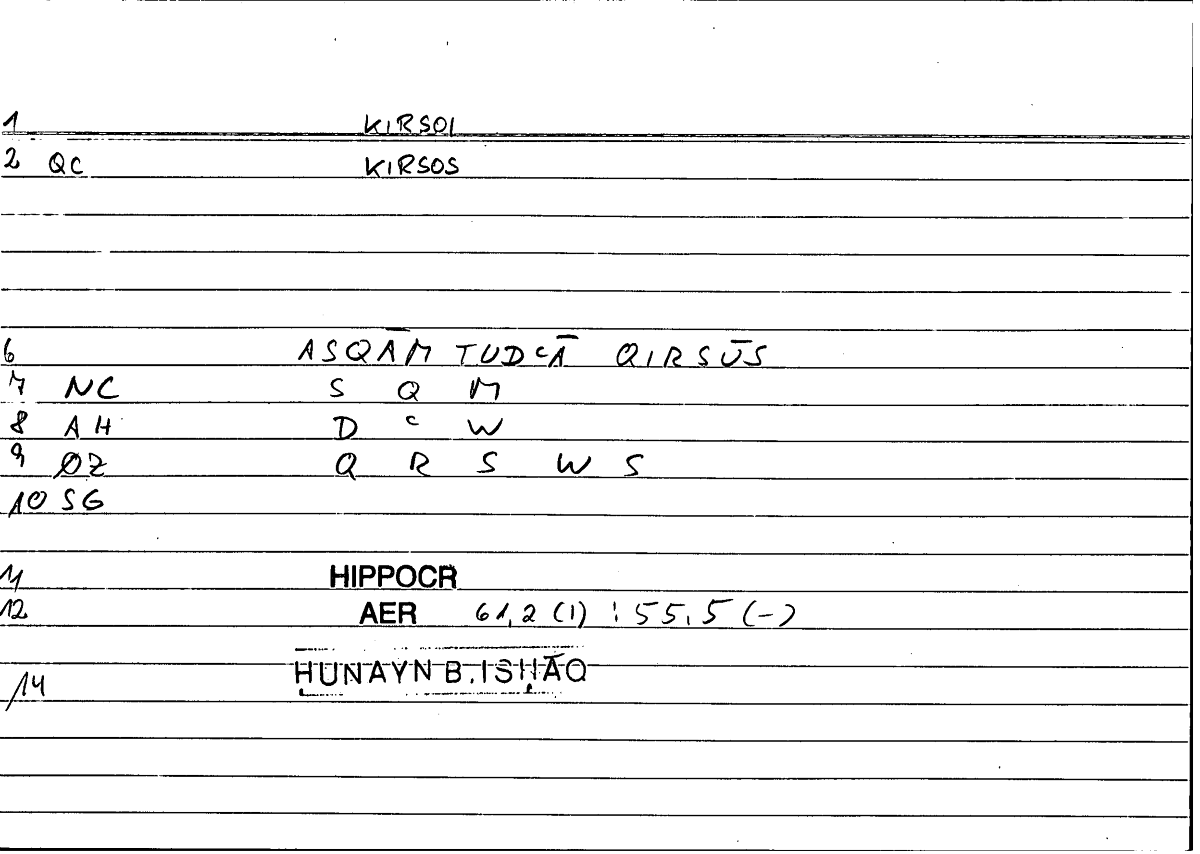 1 KIRSOI
2 QC KIRSOS
6 ASQĀM TUDʿĀ QIRSŪS
7 NC S Q M
8 AH D ʿ W
9 ØZ Q R S W S
10 SG
11 HIPPOCR
12 AER 61,2 (1) : 55,5 (-)
14 ḤUNAYN B. ISḤĀQ